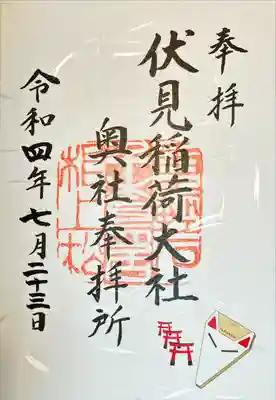 奉拝
伏見稲荷大社
奥社奉拝所
令和四年七月二十三日